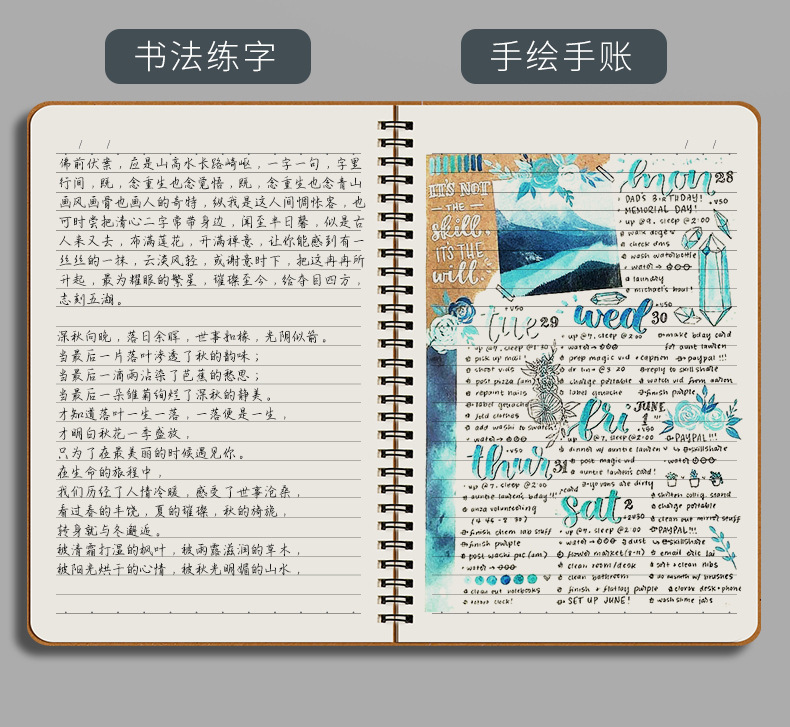 书法练字
手绘手账
佛前伏案，应是山高水长路崎岖，一字一句，字里
行间，既，念重生也念觉悟，既，念重生也念青山
画风画骨也画人的奇特，纵我是这人间惆怅客，也
可时尝把清心二字常带身边，闲至半日馨，似是古
人来又去，布满莲花，开满禅意，让你能感到有一
丝丝的一抹，云淡风轻，或谢意时下，把这冉冉所
升起，最为耀眼的繁星，璀璨至今，给夺目四方，
志刻五湖。
深秋向晚，落日余晖，世事和椽，光阴似箭。
当最后一片落叶渗透了秋的韵味；
当最后一滴雨沾染了芭蕉的愁思；
当最后一朵雏菊绚烂了深秋的静美。
才知道落叶一生一落，一落便是一生，
才明白秋花一季盛放，
只为了在最美丽的时候遇见你。
在生命的旅程中，
我们历经了人情冷暖，感受了世事沧桑，
看过春的丰饶，夏的璀璨，秋的旖旎，
转身就与冬邂逅。
被清霜打湿的枫叶，被雨露滋润的草木，
被阳光烘干的心情，被秋光明媚的山水，
IT'S NOT
THE
skill,
IT'S THE
will.
mon 28
DAD'S BIRTHDAY!
MEMORIAL DAY!
up @9, sleep @2:00
walk doges
check dms
wash waterbottle
water
laundry
michael's haul!
tue 29
up @7, sleep @1:30
pick up mail
cheat vids
post pizza (am)
repaint nails
label gouache
fold clothes
add washi to swatch
water
wed 30
up @7, sleep @2:00
water
prep magic vid + caption
dr lin @3:20
charge portable
label gouache
make bday card
for aunt lawren
paypal!!!
reply to skillshare
watch vid from aaren
finish purple
thur 31
up @7, sleep @2:00
auntie lawren's bday!!
anza volunteering
(4:45-8:30)
finish chem lab stuff
finish purple
post washi pac (am)
water
clean out notebooks
colour clock!
fri JUNE 1
up @7, sleep @2:00
dinner w/ auntie lawren
post magic vid
auntie lawren's card!
PAYPAL!!!
skillshare
water
sat 2
up @7, sleep @2:00
water
flower market (8-11)
clean room/desk
clean bathroom
finish + flatlay purple
SET UP JUNE!
charge portable
clean out mirror stuff
PAYPAL!!!
skillshare
email eric lai
sort + clean nibs
clorox desk + phone
wash shme jars